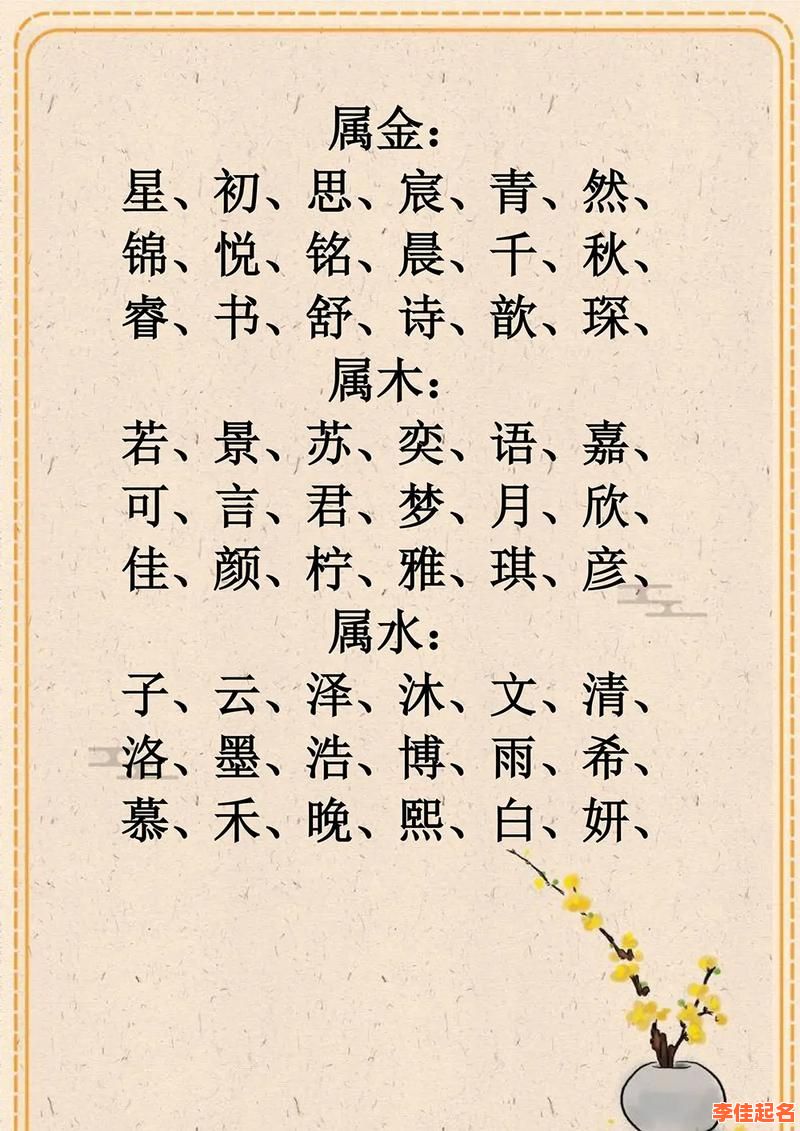 属金：
星、初、思、宸、青、然、
锦、悦、铭、晨、千、秋、
睿、书、舒、诗、歆、琛、
属木：
若、景、苏、奕、语、嘉、
可、言、君、梦、月、欣、
佳、颜、柠、雅、琪、彦、
属水：
子、云、泽、沐、文、清、
洛、墨、浩、博、雨、希、
慕、禾、晚、熙、白、妍、
李佳起名